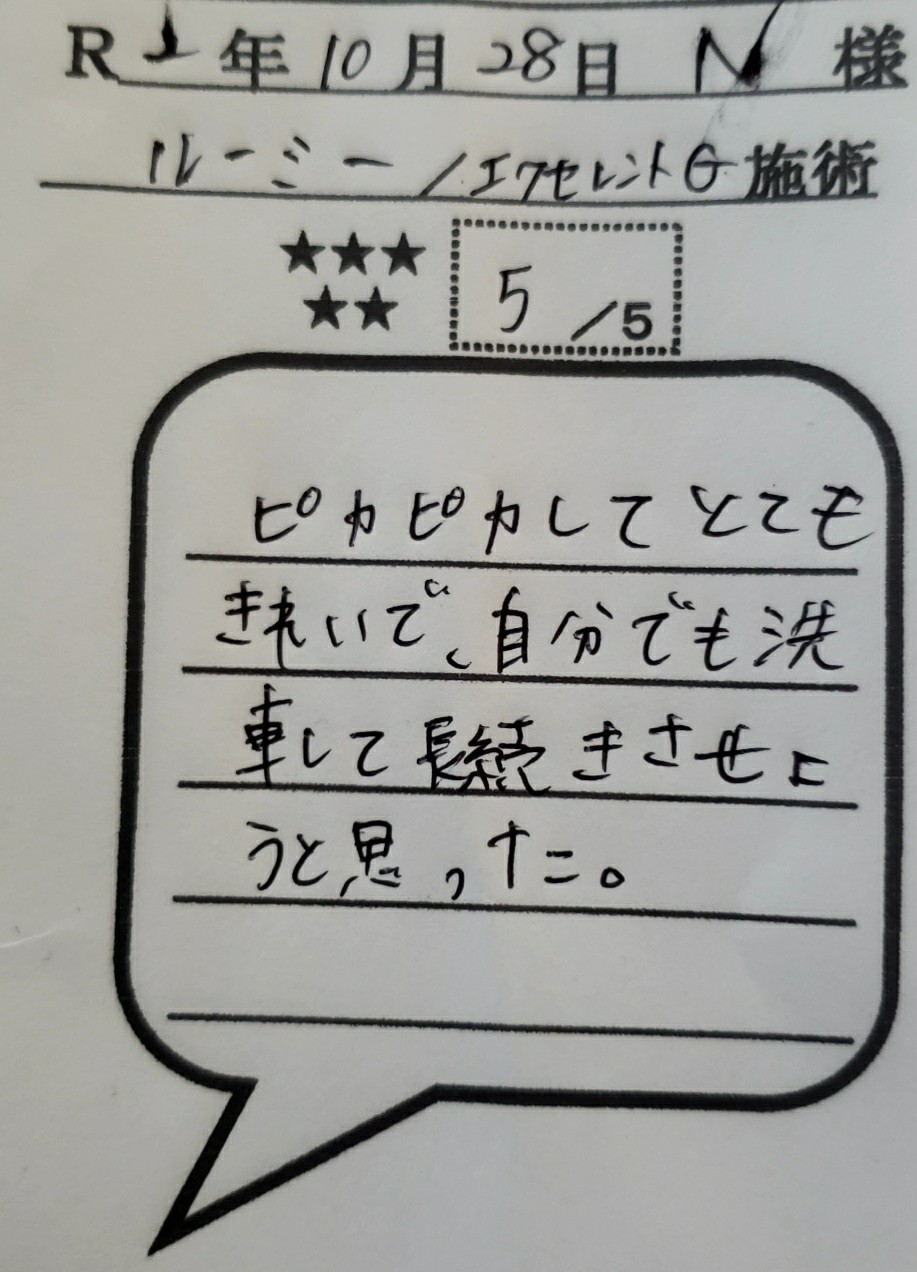 R 年 10 月 28 日 N 様
ルーミー/エクセレントG 施術
★★★
★★
5 /5
ピカピカしてとても
きれいで、自分でも洗
車して長続きさせよ
うと思った。